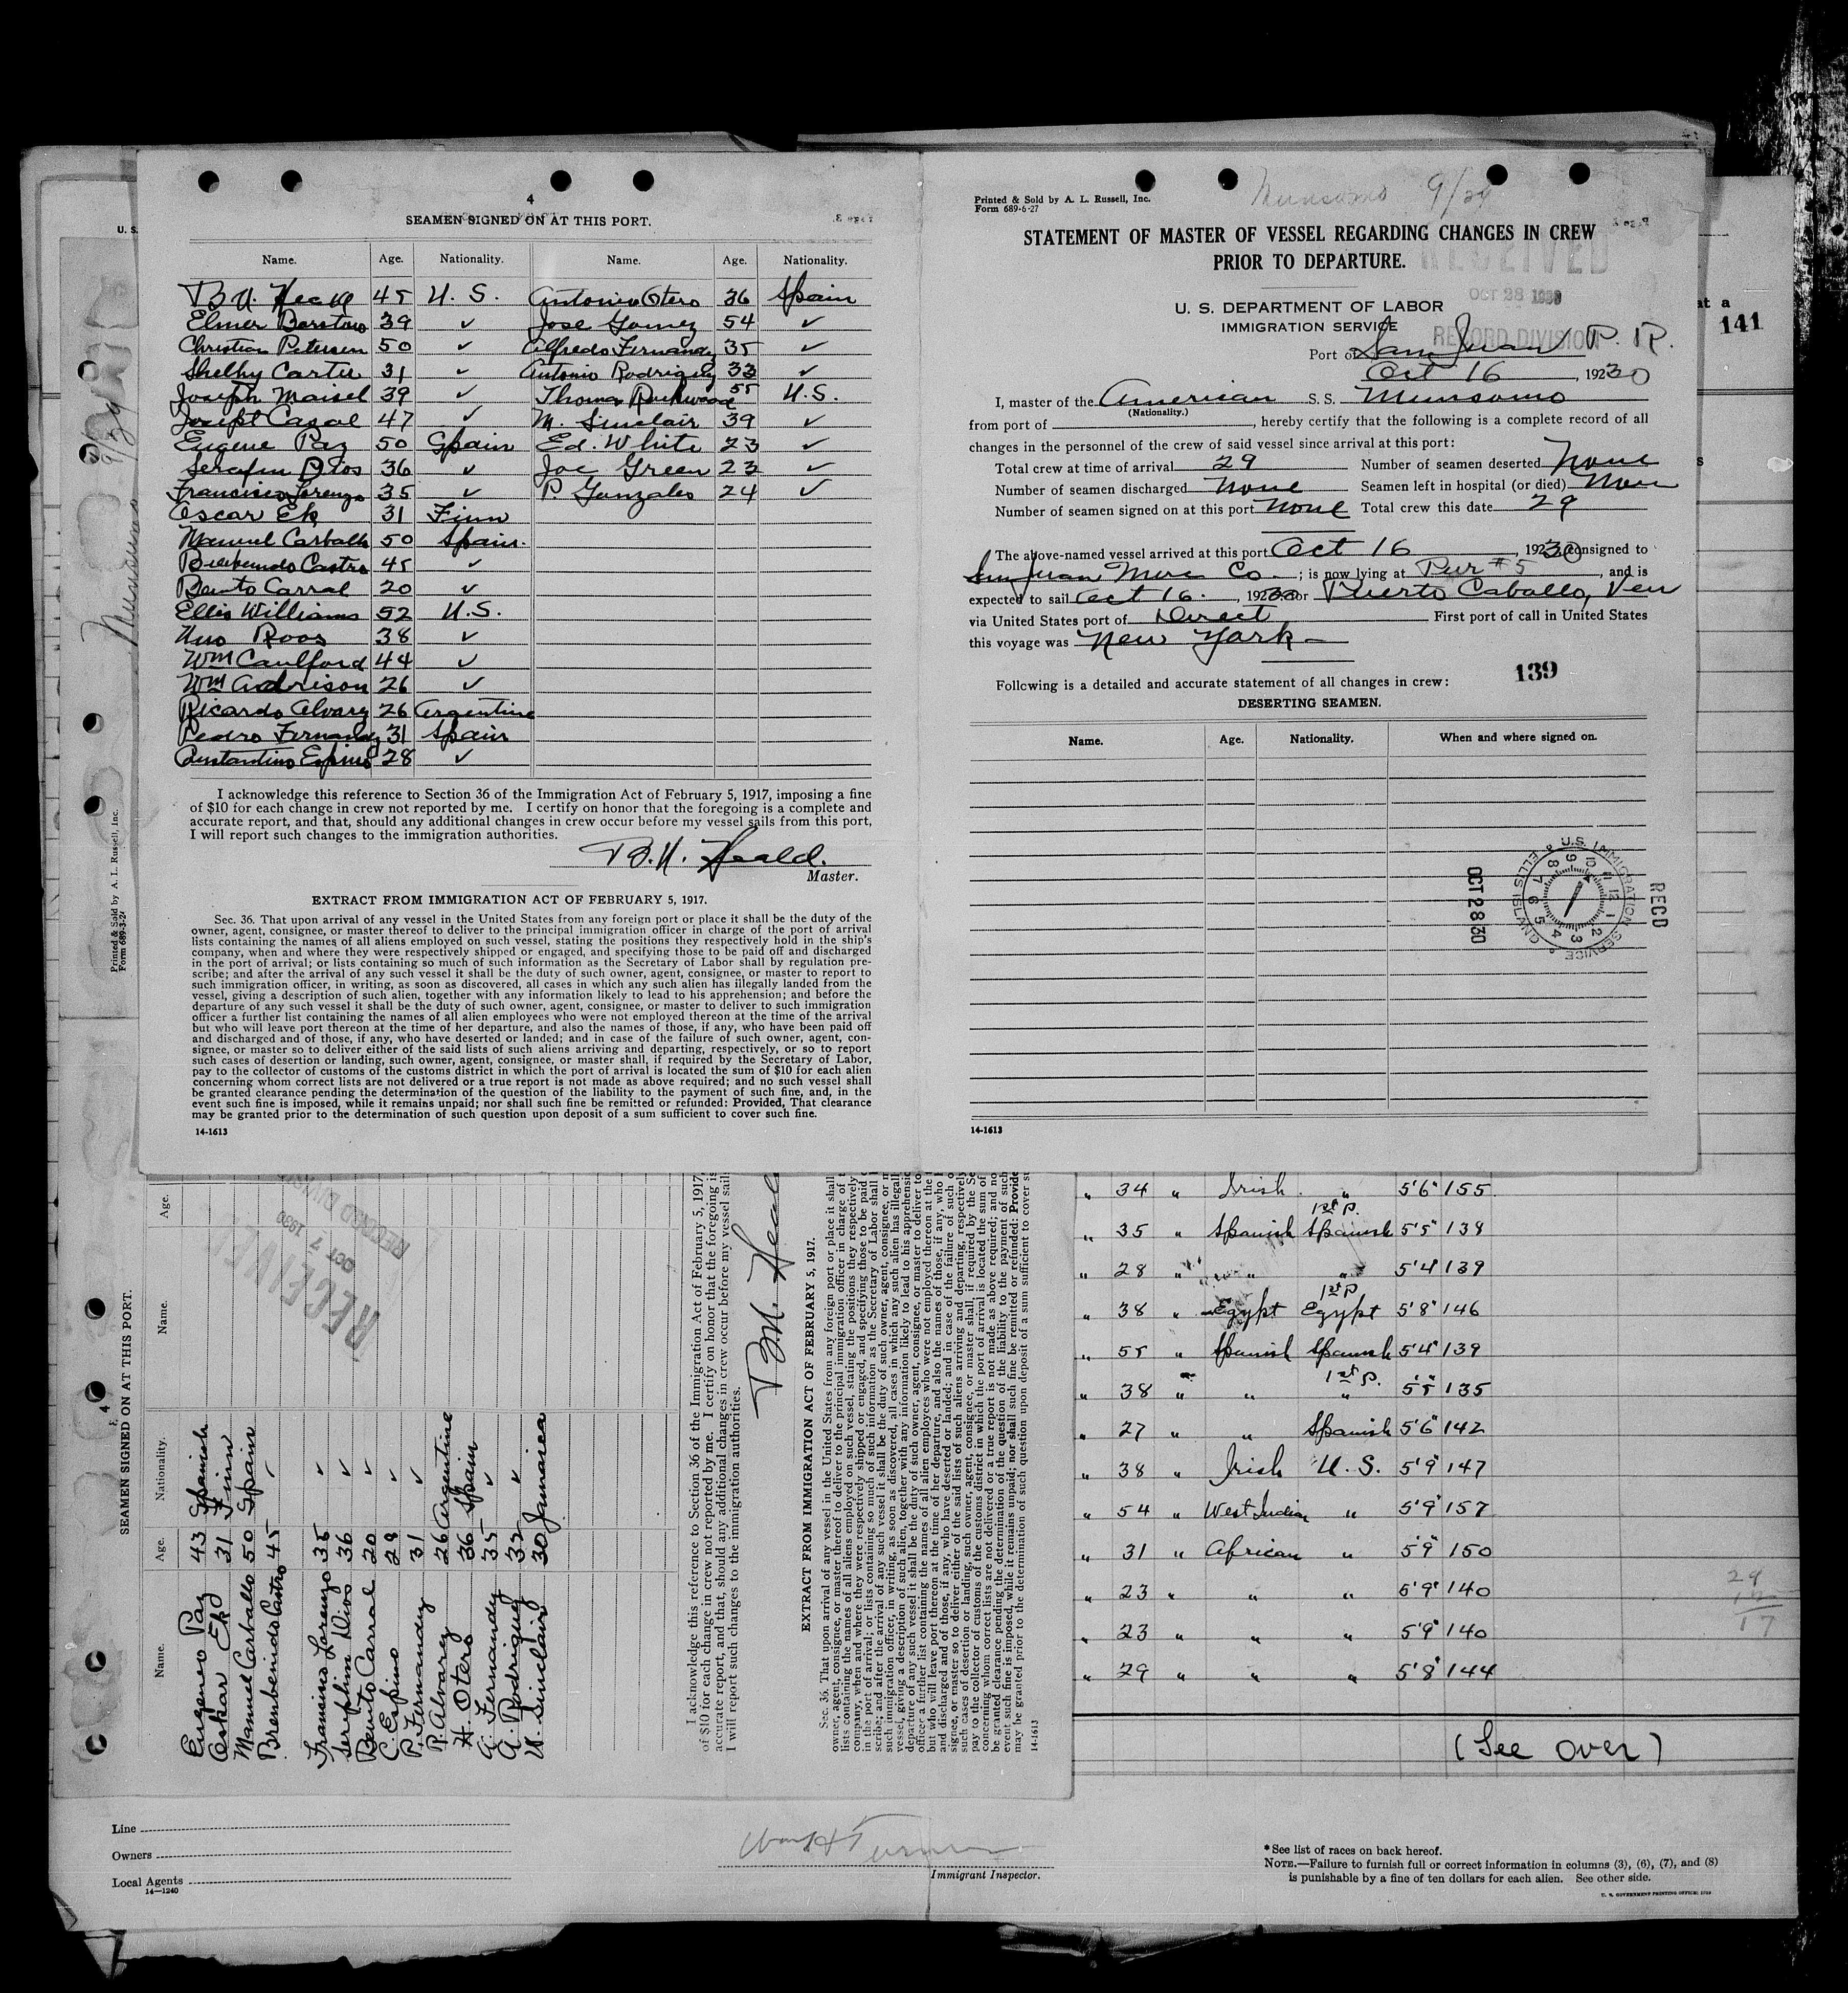 4
SEAMEN SIGNED ON AT THIS PORT.
Name. Age. Nationality. Name. Age. Nationality.
45 U. S. Antonio Otero 36 Spain
Elmer Barstow 39 ✓ Jose Gomez 54 ✓
Christian Petersen 50 ✓ Alfredo Fernandz 35 ✓
Shelby Carter 31 ✓ Antonio Rodriguez 33 ✓
Joseph Maisel 39 ✓ Thomas 55 U.S.
Joseph Casal 47 ✓ M. Sinclair 39 ✓
Eugene Paz 50 Spain Ed. White 23 ✓
Serafin Dios 36 ✓ Joe Green 23 ✓
Francisco Lorenzo 35 ✓ P. Gonzales 24 ✓
Oscar Ek 31 Finn
Manuel Carballo 50 Spain.
Castro 45 ✓
Benito Carral 20 ✓
Ellis Williams 52 U.S.
Roos 38 ✓
Wm Caulford 44 ✓
Wm Adrison 26 ✓
Ricardo Alvarez 26 Argentine
Pedro Fernandz 31 Spain
Constantino Espino 28 ✓
I acknowledge this reference to Section 36 of the Immigration Act of February 5, 1917, imposing a fine
of $10 for each change in crew not reported by me. I certify on honor that the foregoing is a complete and
accurate report, and that, should any additional changes in crew occur before my vessel sails from this port,
I will report such changes to the immigration authorities.
B. N. Heald.
Master.
EXTRACT FROM IMMIGRATION ACT OF FEBRUARY 5, 1917.
Sec. 36. That upon arrival of any vessel in the United States from any foreign port or place it shall be the duty of the
owner, agent, consignee, or master thereof to deliver to the principal immigration officer in charge of the port of arrival
lists containing the names of all aliens employed on such vessel, stating the positions they respectively hold in the ship's
company, when and where they were respectively shipped or engaged, and specifying those to be paid off and discharged
in the port of arrival; or lists containing so much of such information as the Secretary of Labor shall by regulation pre-
scribe; and after the arrival of any such vessel it shall be the duty of such owner, agent, consignee, or master to report to
such immigration officer, in writing, as soon as discovered, all cases in which any such alien has illegally landed from the
vessel, giving a description of such alien, together with any information likely to lead to his apprehension; and before the
departure of any such vessel it shall be the duty of such owner, agent, consignee, or master to deliver to such immigration
officer a further list containing the names of all alien employees who were not employed thereon at the time of the arrival
but who will leave port thereon at the time of her departure, and also the names of those, if any, who have been paid off
and discharged and of those, if any, who have deserted or landed; and in case of the failure of such owner, agent, con-
signee, or master so to deliver either of the said lists of such aliens arriving and departing, respectively, or so to report
such cases of desertion or landing, such owner, agent, consignee, or master shall, if required by the Secretary of Labor,
pay to the collector of customs of the customs district in which the port of arrival is located the sum of $10 for each alien
concerning whom correct lists are not delivered or a true report is not made as above required; and no such vessel shall
be granted clearance pending the determination of the question of the liability to the payment of such fine, and, in the
event such fine is imposed, while it remains unpaid; nor shall such fine be remitted or refunded: Provided, That clearance
may be granted prior to the determination of such question upon deposit of a sum sufficient to cover such fine.
14-1613
Printed & Sold by A. L. Russell, Inc.
Form 689-6-27
Munsomo 9/29
STATEMENT OF MASTER OF VESSEL REGARDING CHANGES IN CREW
PRIOR TO DEPARTURE.
RECEIVED
OCT 28 1930
RECORD DIVISION
U. S. DEPARTMENT OF LABOR
IMMIGRATION SERVICE
Port of San Juan P. R.
Oct 16, 19230
I, master of the American S. S. Munsomo
(Nationality.)
from port of , hereby certify that the following is a complete record of all
changes in the personnel of the crew of said vessel since arrival at this port:
Total crew at time of arrival 29 Number of seamen deserted None
Number of seamen discharged None Seamen left in hospital (or died) None
Number of seamen signed on at this port None Total crew this date 29
The above-named vessel arrived at this port Oct 16, 19230, consigned to
San Juan Merc Co.; is now lying at Pier #5, and is
expected to sail Oct 16., 19230 for Puerto Cabello, Ven
via United States port of Direct First port of call in United States
this voyage was New York —
139
Following is a detailed and accurate statement of all changes in crew:
DESERTING SEAMEN.
Name. Age. Nationality. When and where signed on.
U.S. IMMIGRATION SERVICE ELLIS ISLAND
RECD
OCT 28 30
14-1613
at a
141
U. S.
Munsomo 9/29
Printed & Sold by A. L. Russell, Inc.
Form 689-3-24
4
SEAMEN SIGNED ON AT THIS PORT.
Name. Age. Nationality. Name. Age.
Eugeneo Paz 43 Spanish
Oskar Ek 31 Finn
Manuel Carballo 50 Spain
Brembenindo Castro 45 ✓
Francisco Lorenzo 35 ✓
Seraphim Dios 36 ✓
Benito Carral 20 ✓
C. Espino 28 ✓
P. Fernandz 31 ✓
R. Alvarez 26 Argentine
H. Otero 36 Spain
A. Fernandz 35 ✓
A. Rodriguez 33 ✓
W. Sinclair 30 Jamaica
RECEIVED
OCT 7 1930
RECORD DIVISION
I acknowledge this reference to Section 36 of the Immigration Act of February 5, 1917,
of $10 for each change in crew not reported by me. I certify on honor that the foregoing is
accurate report, and that, should any additional changes in crew occur before my vessel sails
I will report such changes to the immigration authorities.
EXTRACT FROM IMMIGRATION ACT OF FEBRUARY 5, 1917.
14-1613
" 34 " Irish " 5'6" 155
1st P.
" 35 " Spanish Spanish 5'5" 138
" 28 " " " 5'4" 139
1st P
" 38 " Egypt Egypt 5'8" 146
" 55 " Spanish Spanish 5'4" 139
1st P.
" 38 " " " 5'5" 135
" 27 " " Spanish 5'6" 142
" 38 " Irish U. S. 5'9" 147
" 54 " West Indian " 5'9" 157
" 31 " African " 5'9" 150
" 23 " " " 5'9" 140
" 23 " " " 5'9" 140
" 29 " " " 5'8" 144
29
12
17
(See over)
Line
Owners
Local Agents
14—1240
Immigrant Inspector.
*See list of races on back hereof.
NOTE.—Failure to furnish full or correct information in columns (3), (6), (7), and (8)
is punishable by a fine of ten dollars for each alien. See other side.
U. S. GOVERNMENT PRINTING OFFICE: